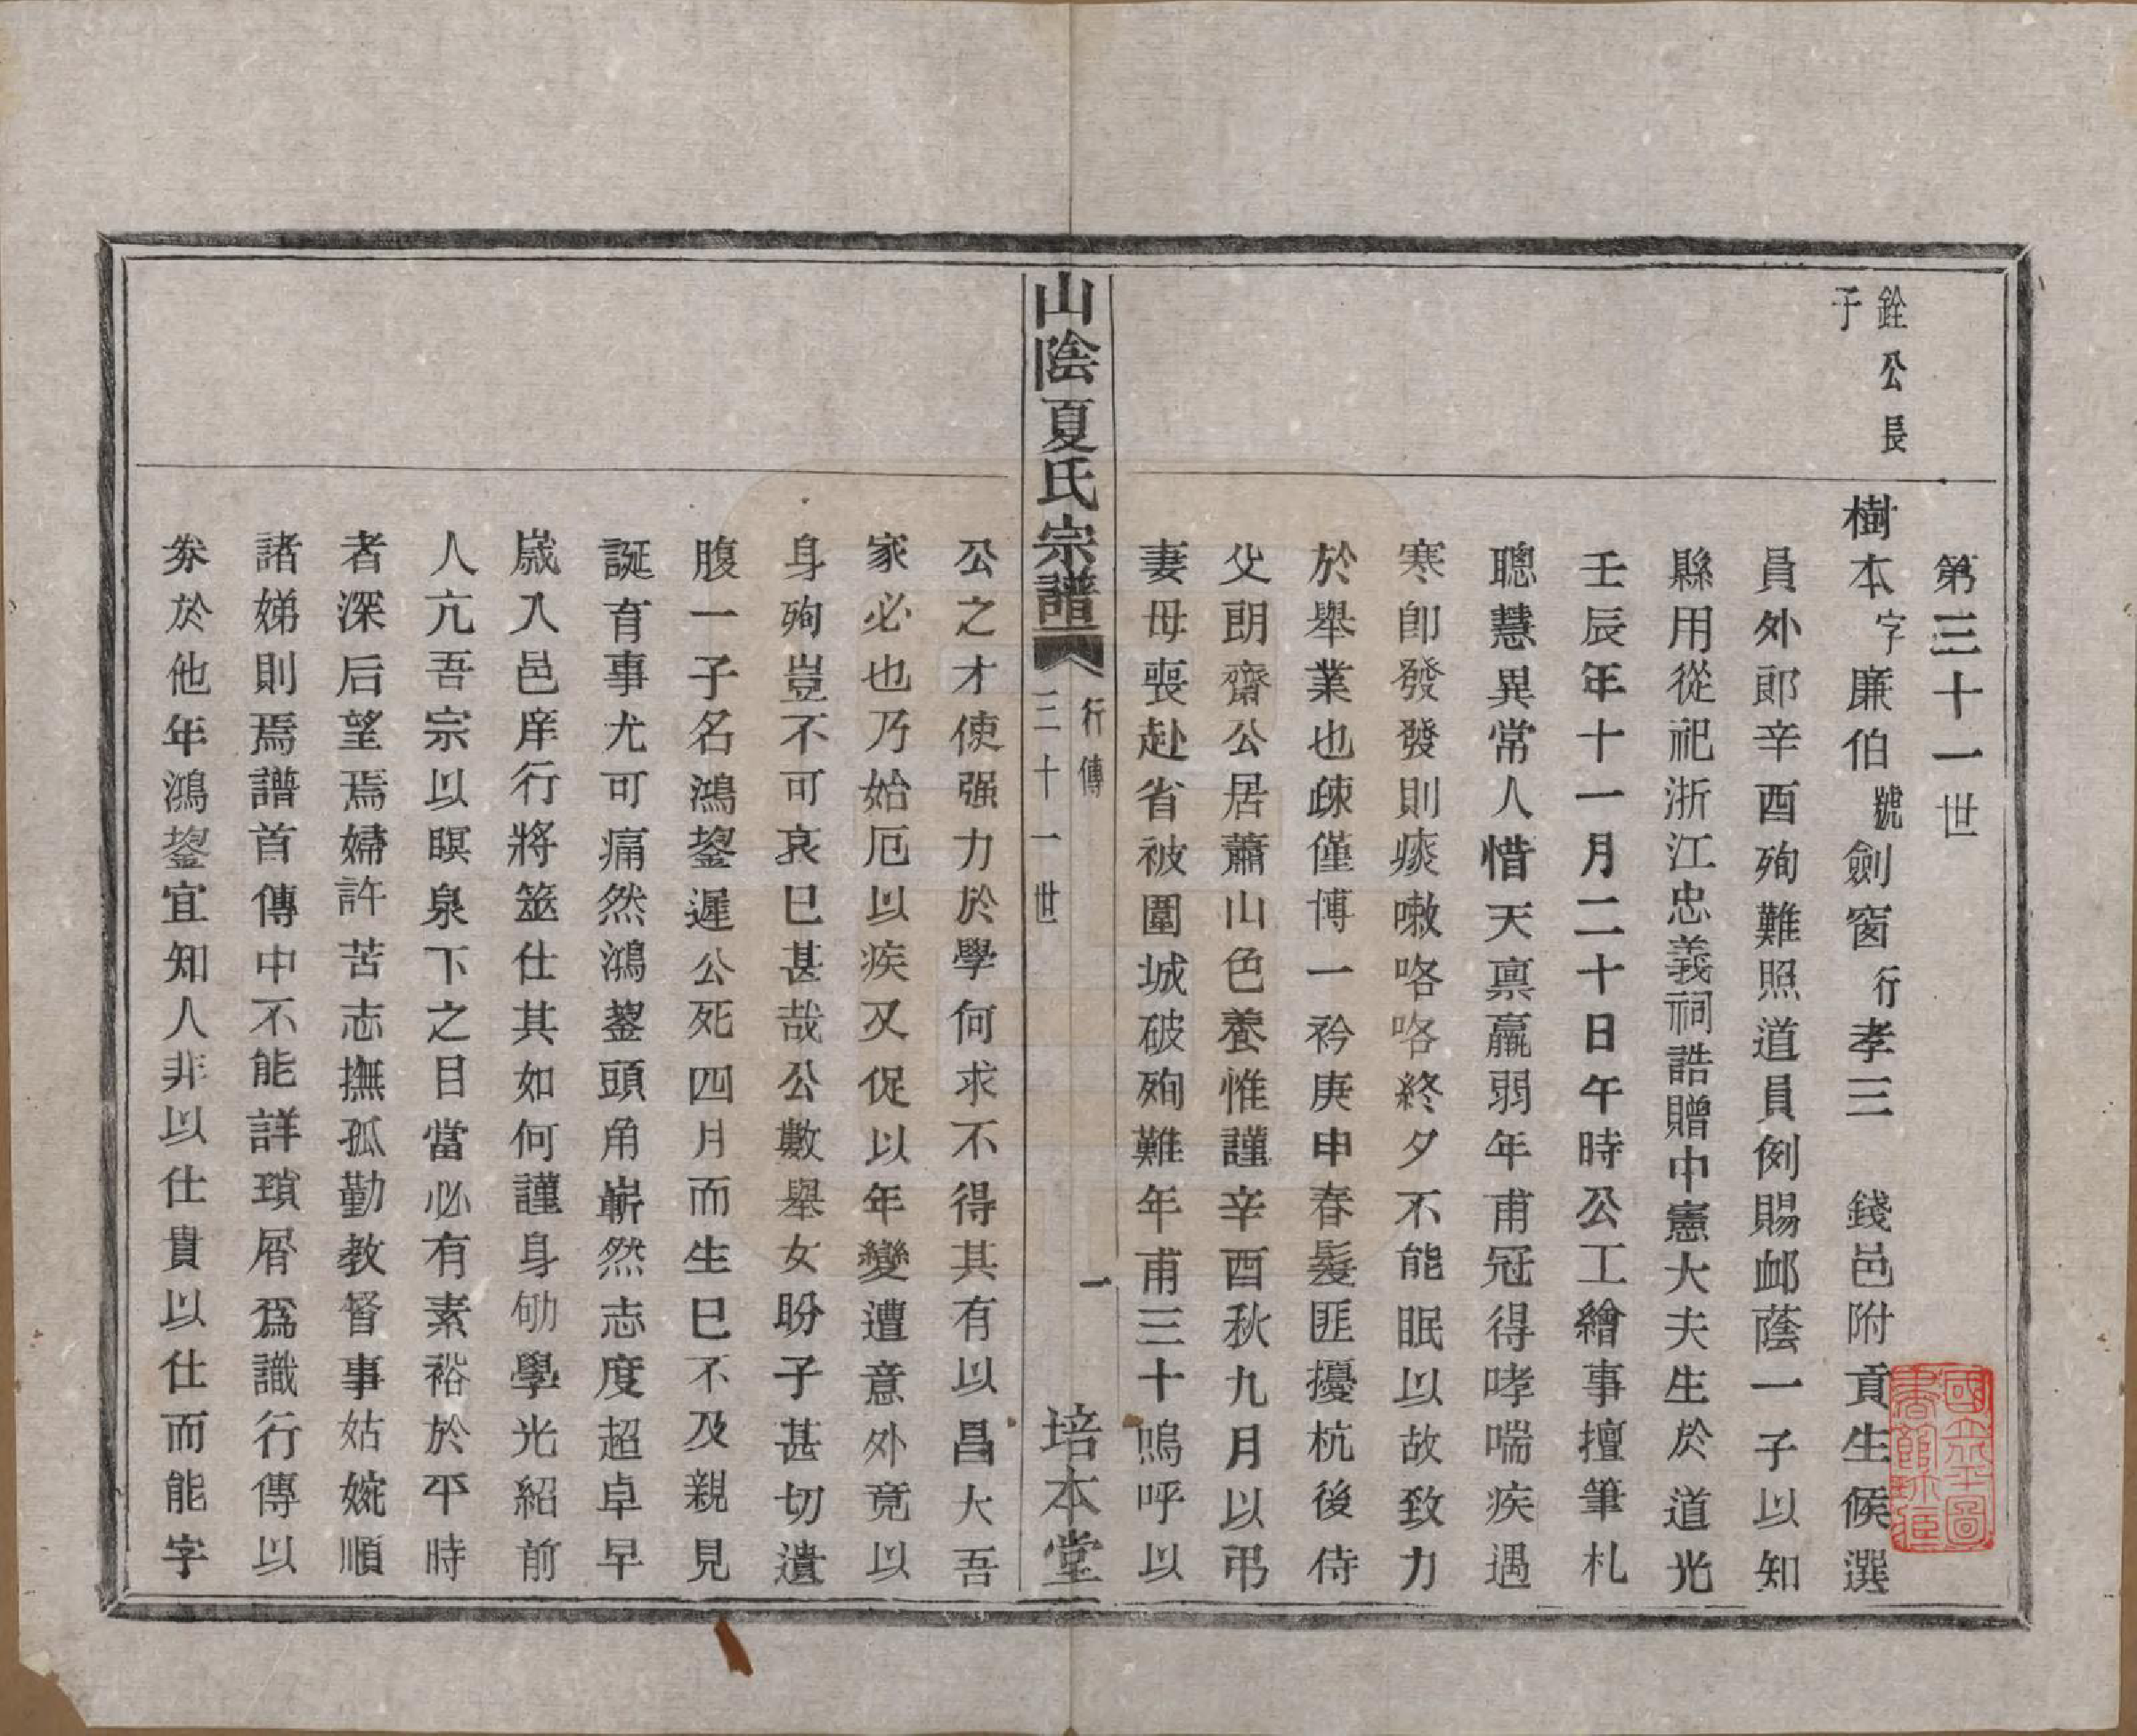 第三十一世
銓公長
子
樹本字廉伯號劍窗行孝三　錢邑附貢生候選
員外郎辛酉殉難照道員例賜卹蔭一子以知
縣用從祀浙江忠義祠誥贈中憲大夫生於道光
壬辰年十一月二十日午時公工繪事擅筆札
聰慧異常人惜天禀羸弱年甫冠得哮喘疾遇
寒卽發發則痰嗽咯咯終夕不能眠以故致力
於舉業也疎僅博一衿庚申春髮匪擾杭後侍
父朗齋公居蕭山色養惟謹辛酉秋九月以弔
妻母喪赴省被圍城破殉難年甫三十嗚呼以
山陰夏氏宗譜
行傳
三十一世
一
培本堂
公之才使强力於學何求不得其有以昌大吾
家必也乃始厄以疾又促以年變遭意外竟以
身殉豈不可哀巳甚哉公數舉女盼子甚切遺
腹一子名鴻鋆遲公死四月而生巳不及親見
誕育事尤可痛然鴻鋆頭角嶄然志度超卓早
歲入邑庠行將筮仕其如何謹身劬學光紹前
人亢吾宗以暝泉下之目當必有素裕於平時
者深后望焉婦許苦志撫孤勤教督事姑婉順
諸娣則焉譜首傳中不能詳瑣屑爲識行傳以
券於他年鴻鋆宜知人非以仕貴以仕而能字
國立北平圖
書館珍藏